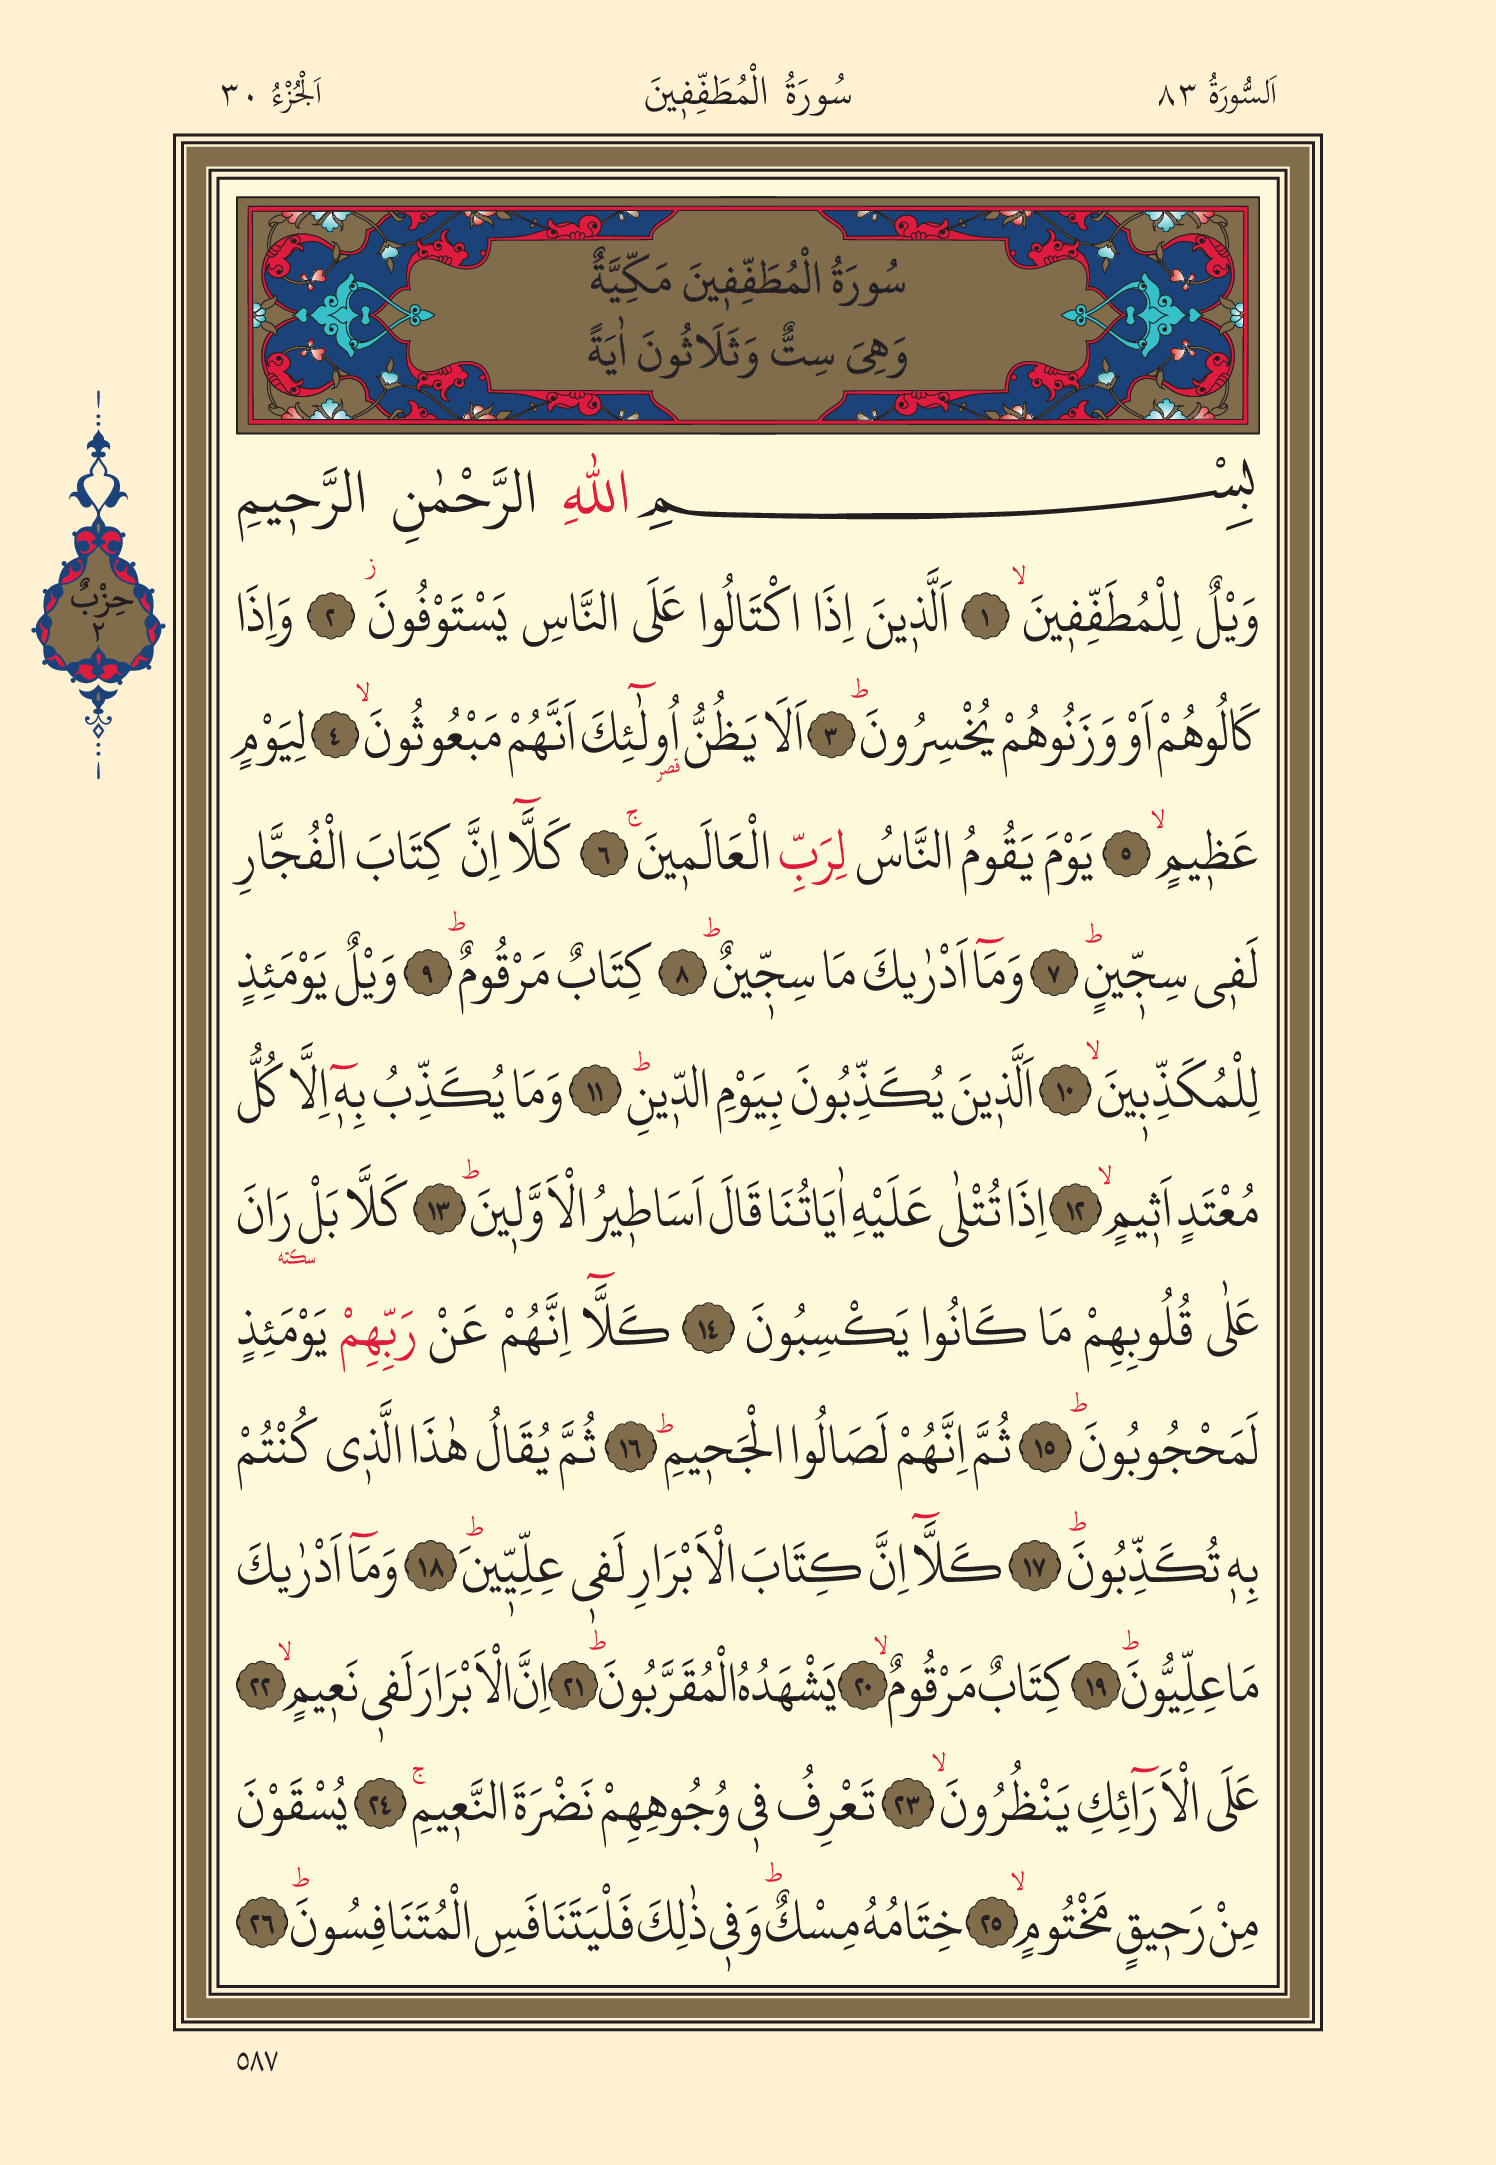 اَلسُّورَةُ ٨٣
سُورَةُ الْمُطَفِّفٖينَ
اَلْجُزْءُ ٣٠
سُورَةُ الْمُطَفِّفٖينَ مَكِّيَّةٌ
وَهِىَ سِتٌّ وَثَلَاثُونَ اٰيَةً
بِسْمِ اللّٰهِ الرَّحْمٰنِ الرَّحٖيمِ
وَيْلٌ لِلْمُطَفِّفٖينَۙ ﴿١﴾ اَلَّذٖينَ اِذَا اكْتَالُوا عَلَى النَّاسِ يَسْتَوْفُونَؗ ﴿٢﴾ وَاِذَا
كَالُوهُمْ اَوْ وَزَنُوهُمْ يُخْسِرُونَؕ ﴿٣﴾ اَلَا يَظُنُّ اُولٰٓئِكَ اَنَّهُمْ مَبْعُوثُونَۙ ﴿٤﴾ لِيَوْمٍ
قصر
عَظٖيمٍۙ ﴿٥﴾ يَوْمَ يَقُومُ النَّاسُ لِرَبِّ الْعَالَمٖينَۚ ﴿٦﴾ كَلَّٓا اِنَّ كِتَابَ الْفُجَّارِ
لَفٖى سِجّٖينٍؕ ﴿٧﴾ وَمَٓا اَدْرٰيكَ مَا سِجّٖينٌؕ ﴿٨﴾ كِتَابٌ مَرْقُومٌؕ ﴿٩﴾ وَيْلٌ يَوْمَئِذٍ
لِلْمُكَذِّبٖينَۙ ﴿١٠﴾ اَلَّذٖينَ يُكَذِّبُونَ بِيَوْمِ الدّٖينِؕ ﴿١١﴾ وَمَا يُكَذِّبُ بِهٖٓ اِلَّا كُلُّ
مُعْتَدٍ اَثٖيمٍۙ ﴿١٢﴾ اِذَا تُتْلٰى عَلَيْهِ اٰيَاتُنَا قَالَ اَسَاطٖيرُ الْاَوَّلٖينَؕ ﴿١٣﴾ كَلَّا بَلْ رَانَ
سكته
عَلٰى قُلُوبِهِمْ مَا كَانُوا يَكْسِبُونَ ﴿١٤﴾ كَلَّٓا اِنَّهُمْ عَنْ رَبِّهِمْ يَوْمَئِذٍ
لَمَحْجُوبُونَؕ ﴿١٥﴾ ثُمَّ اِنَّهُمْ لَصَالُوا الْجَحٖيمِؕ ﴿١٦﴾ ثُمَّ يُقَالُ هٰذَا الَّذٖى كُنْتُمْ
بِهٖ تُكَذِّبُونَؕ ﴿١٧﴾ كَلَّٓا اِنَّ كِتَابَ الْاَبْرَارِ لَفٖى عِلِّيّٖينَؕ ﴿١٨﴾ وَمَٓا اَدْرٰيكَ
مَا عِلِّيُّونَؕ ﴿١٩﴾ كِتَابٌ مَرْقُومٌۙ ﴿٢٠﴾ يَشْهَدُهُ الْمُقَرَّبُونَؕ ﴿٢١﴾ اِنَّ الْاَبْرَارَ لَفٖى نَعٖيمٍۙ ﴿٢٢﴾
عَلَى الْاَرَٓائِكِ يَنْظُرُونَۙ ﴿٢٣﴾ تَعْرِفُ فٖى وُجُوهِهِمْ نَضْرَةَ النَّعٖيمِۚ ﴿٢٤﴾ يُسْقَوْنَ
مِنْ رَحٖيقٍ مَخْتُومٍۙ ﴿٢٥﴾ خِتَامُهُ مِسْكٌؕ وَفٖى ذٰلِكَ فَلْيَتَنَافَسِ الْمُتَنَافِسُونَؕ ﴿٢٦﴾
حِزْبٌ
٢
٥٨٧